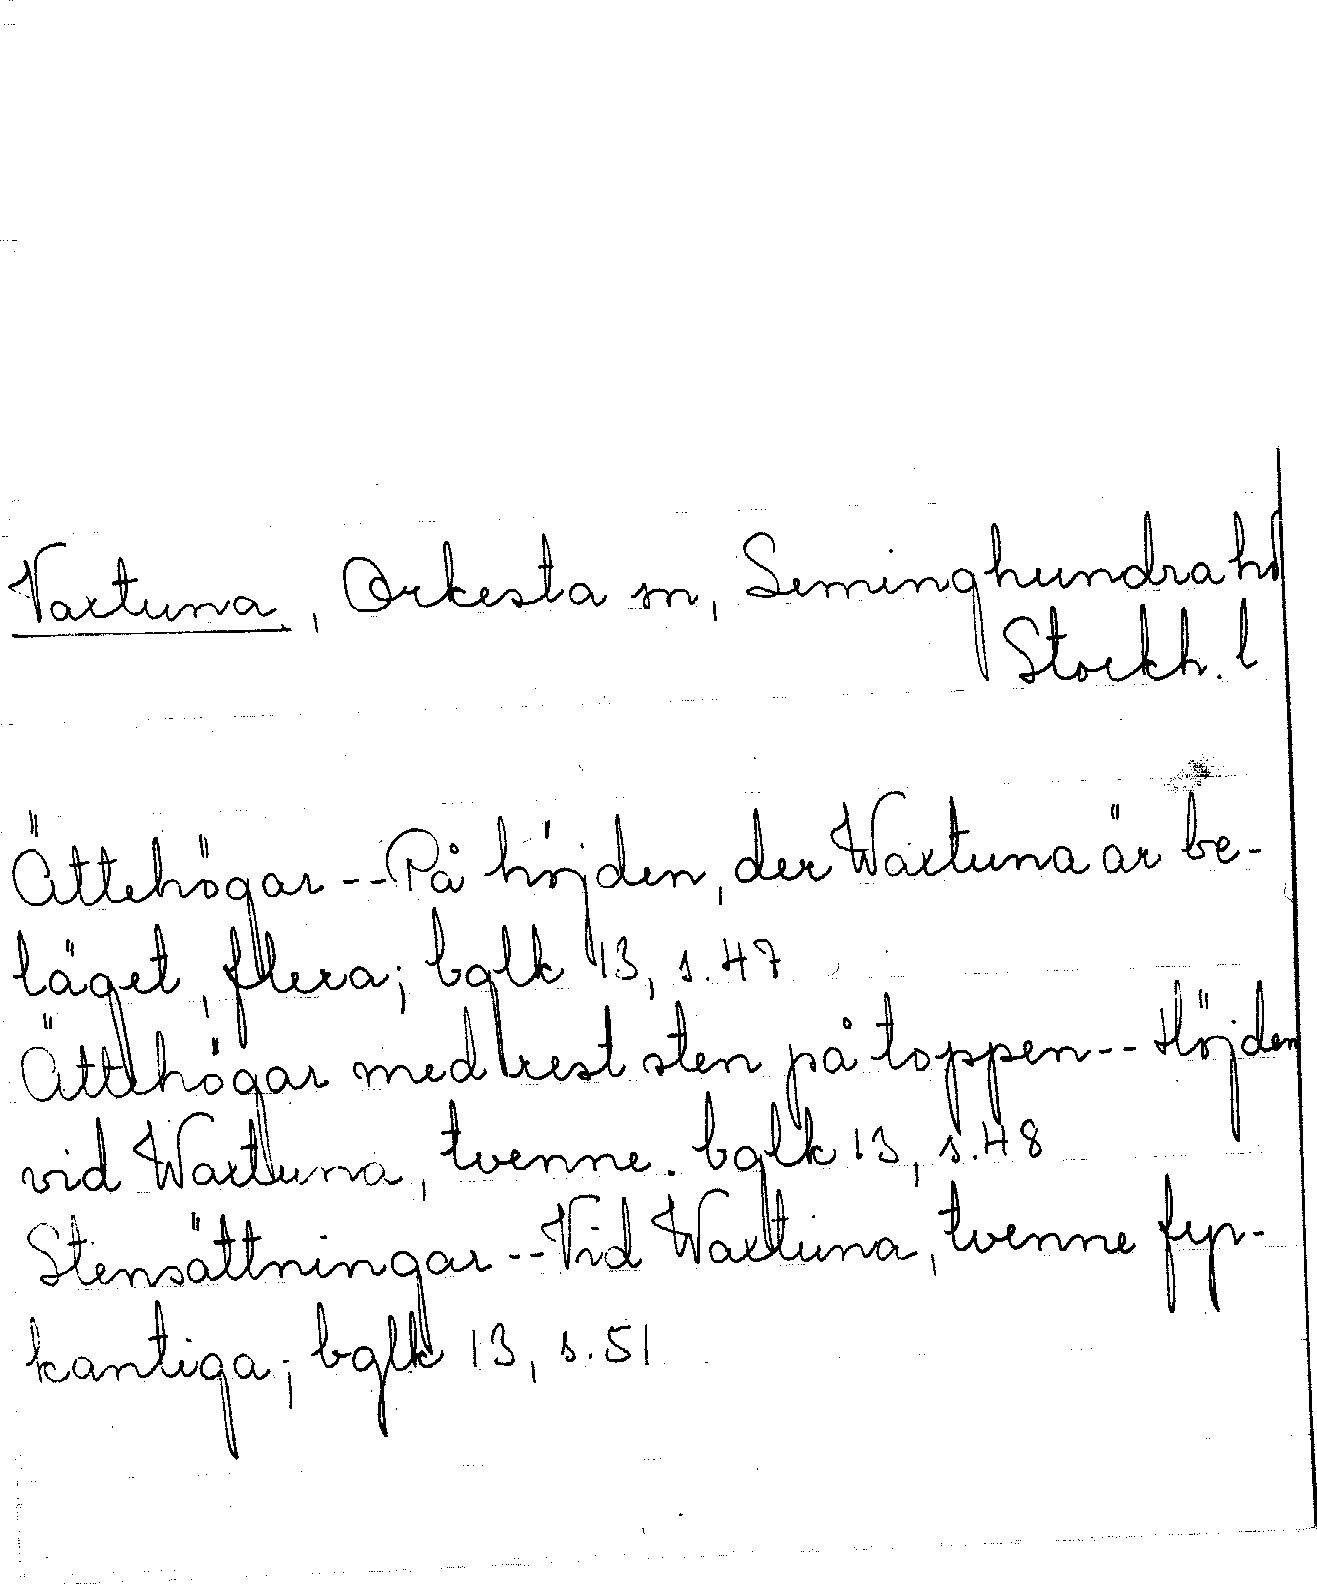 Vaxtuna, Orkesta sn, Seminghundra hd
Stockh. l
Ättehögar -- På höjden, der Waxtuna är be-
läget, flera; bglk 13, s. 47
Ättehögar med rest sten på toppen -- Höjden
vid Waxtuna, tvenne. bglk 13, s. 48
Stensättningar -- Vid Waxtuna, tvenne fyr-
kantiga; bglk 13, s. 51